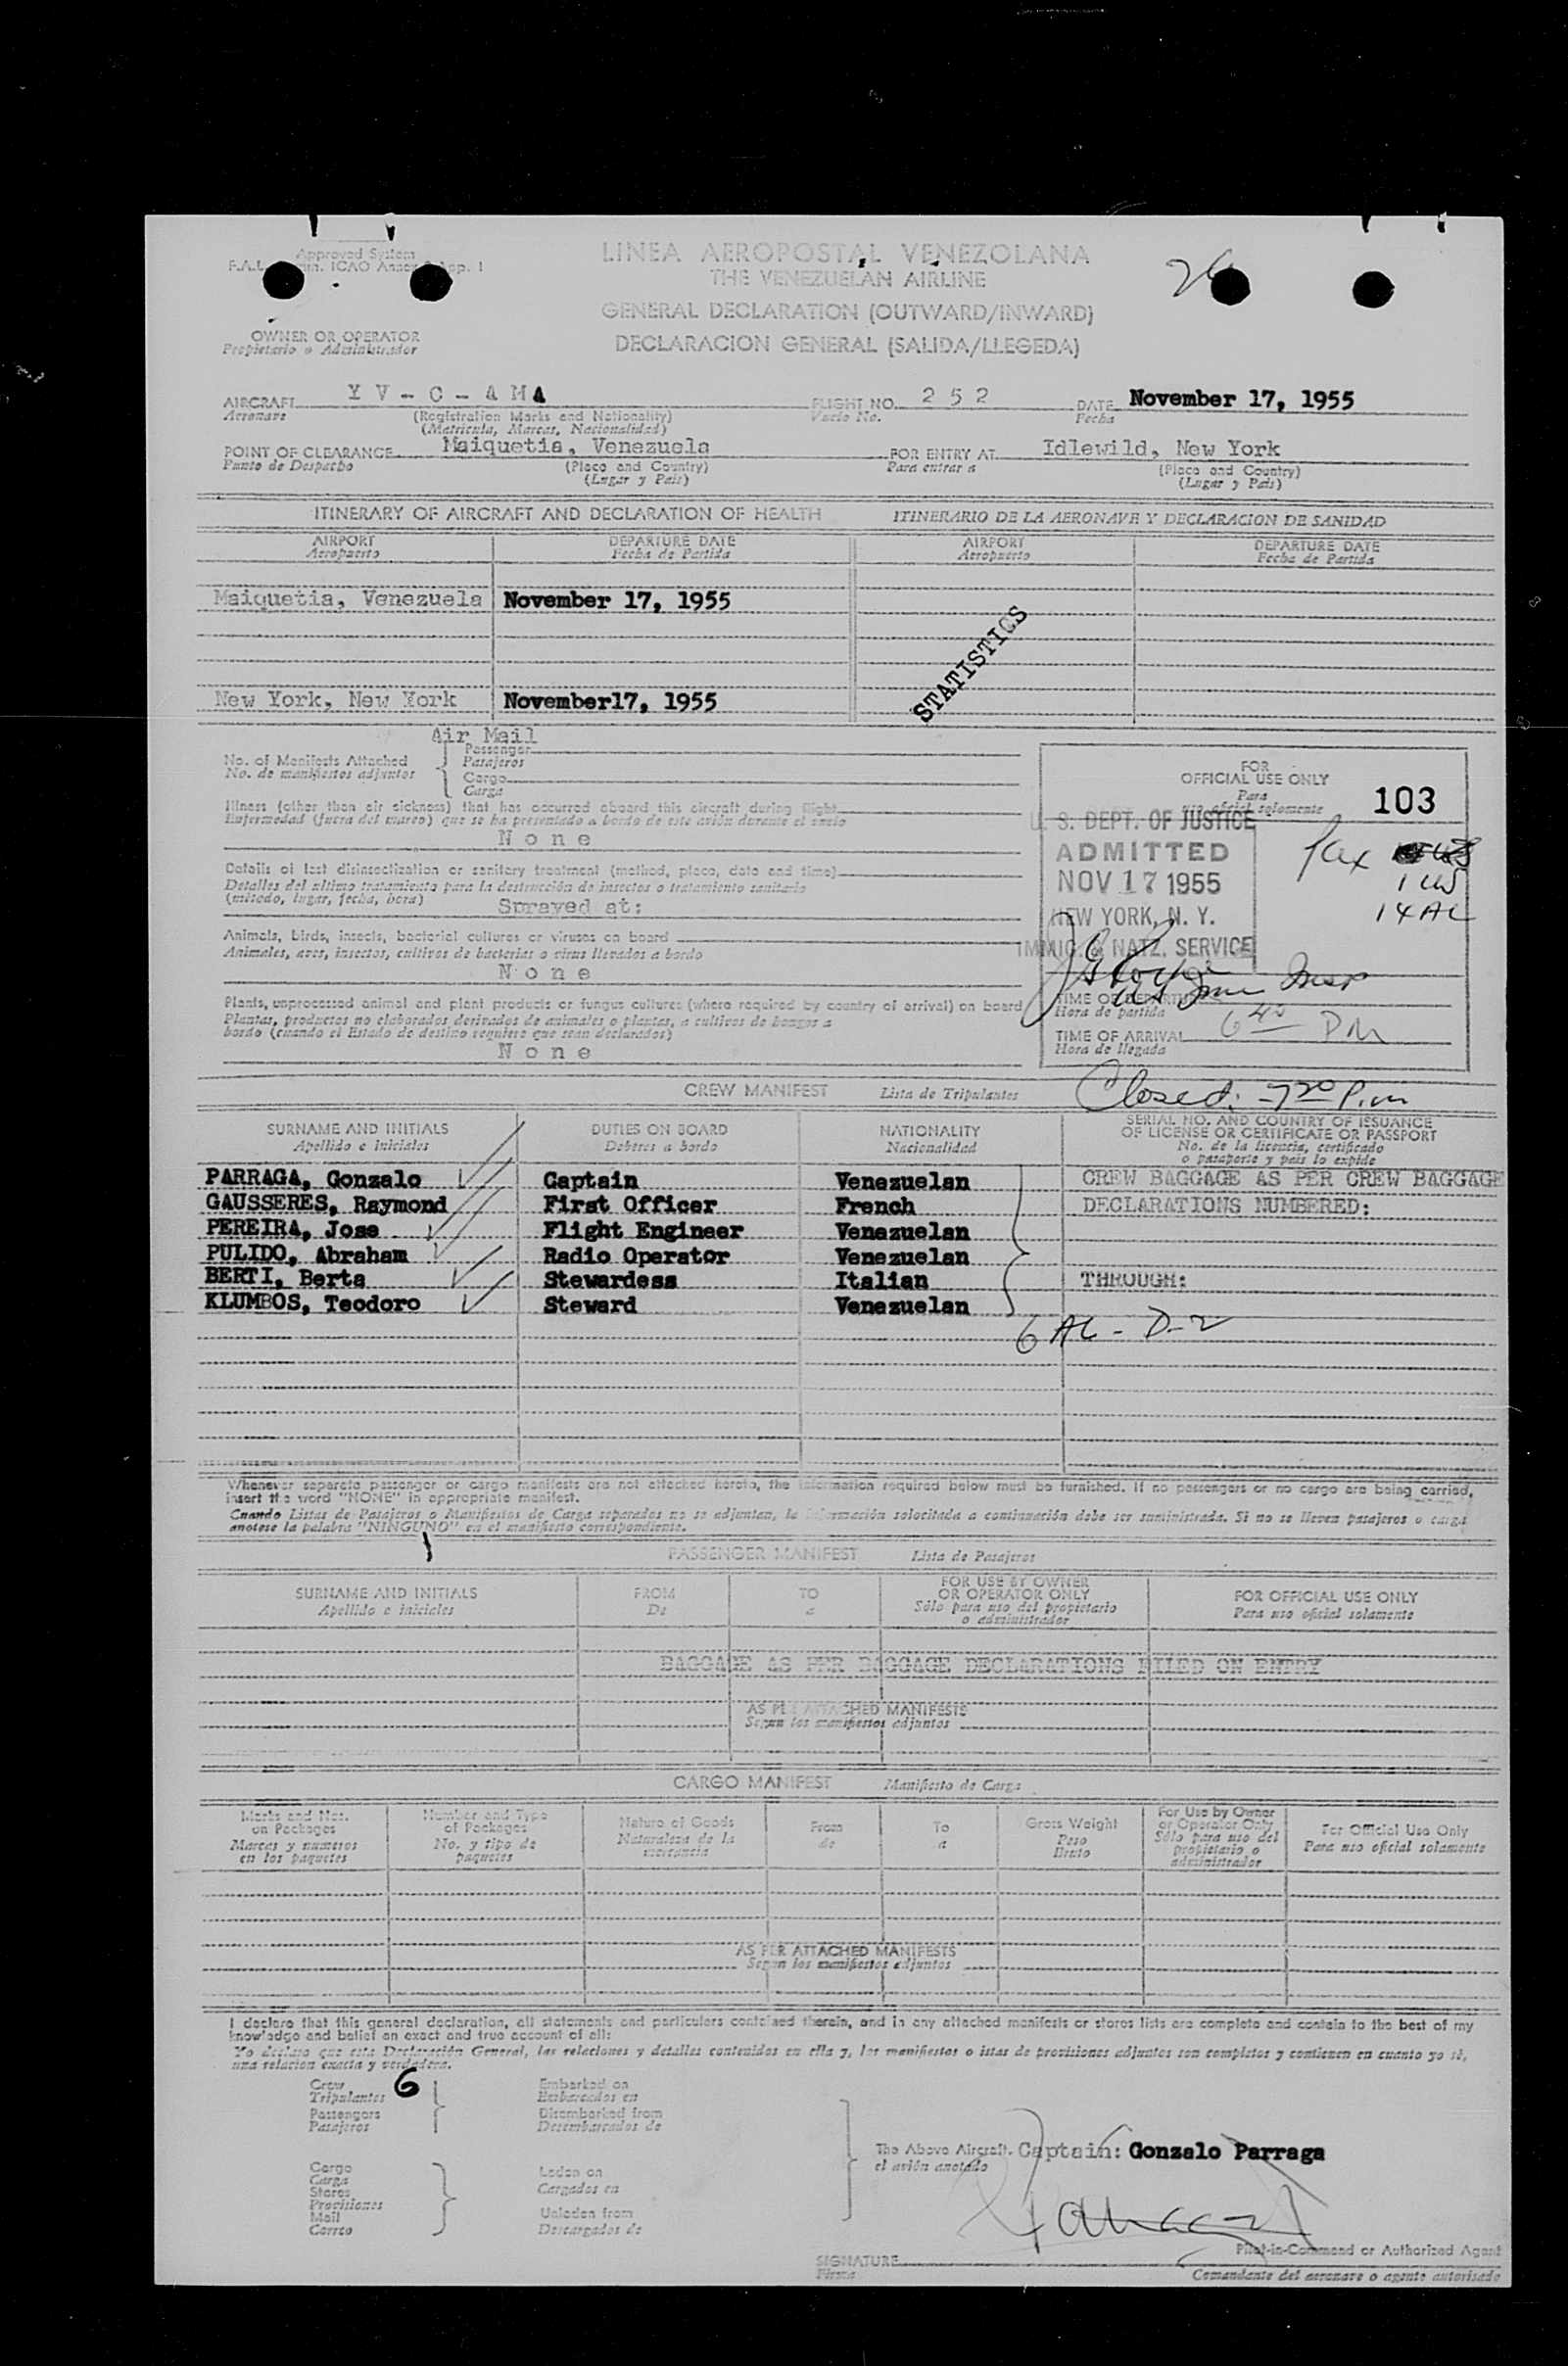 Approved System
LINEA AEROPOSTAL VENEZOLANA
THE VENEZUELAN AIRLINE
GENERAL DECLARATION (OUTWARD/INWARD)
DECLARACION GENERAL (SALIDA/LLEGEDA)
OWNER OR OPERATOR
Propietario o Administrador
AIRCRAFT Y V - C - A M A FLIGHT NO. 2 5 2 DATE November 17, 1955
Aeronave (Registration Marks and Nationality) Vuelo No. Fecha
(Matricula, Marcas, Nacionalidad)
POINT OF CLEARANCE Maiquetia, Venezuela FOR ENTRY AT Idlewild, New York
Punto de Despacho (Place and Country) Para entrar a (Place and Country)
(Lugar y País) (Lugar y País)
ITINERARY OF AIRCRAFT AND DECLARATION OF HEALTH ITINERARIO DE LA AERONAVE Y DECLARACION DE SANIDAD
AIRPORT DEPARTURE DATE AIRPORT DEPARTURE DATE
Aeropuerto Fecha de Partida Aeropuerto Fecha de Partida
Maiquetia, Venezuela November 17, 1955
STATISTICS
New York, New York November17, 1955
Air Mail
No. of Manifests Attached Passenger
No. de manifiestos adjuntos Pasajeros
Cargo
Carga
Illness (other than air sickness) that has occurred aboard this aircraft during flight
Enfermedad (fuera del mareo) que se ha presentado a bordo de este avión durante el
N o n e
Details of last disinsectization or sanitary treatment (method, place, date and time)
Detalles del ultimo tratamiento para la destrucción de insectos o tratamiento sanitario
(método, lugar, fecha, hora)
Sprayed at:
Animals, birds, insects, bacterial cultures or viruses on board
Animales, aves, insectos, cultivos de bacterias o virus llevados a bordo
N o n e
Plants, unprocessed animal and plant products or fungus cultures (where required by country of arrival) on board
Plantas, productos no elaborados derivados de animales o plantas, o cultivos de hongos a
bordo (cuando el Estado de destino requiere que sean declarados)
N o n e
FOR
OFFICIAL USE ONLY
Para
uso oficial solamente
103
U. S. DEPT. OF JUSTICE
ADMITTED
NOV 17 1955
NEW YORK, N. Y.
IMMIG. & NATZ. SERVICE
14 AL
TIME OF DEPARTURE
Hora de partida
TIME OF ARRIVAL 6 40 PM
Hora de llegada
Closed: 7 20 P.m
CREW MANIFEST Lista de Tripulantes
SURNAME AND INITIALS DUTIES ON BOARD NATIONALITY SERIAL NO. AND COUNTRY OF ISSUANCE
OF LICENSE OR CERTIFICATE OR PASSPORT
Apellido e iniciales Deberes a bordo Nacionalidad No. de la licencia, certificado
o pasaporte y país lo expide
PARRAGA, Gonzalo Captain Venezuelan CREW BAGGAGE AS PER CREW BAGGAGE
GAUSSERES, Raymond First Officer French DECLARATIONS NUMBERED:
PEREIRA, Jose Flight Engineer Venezuelan
PULIDO, Abraham Radio Operator Venezuelan
BERTI, Berta Stewardess Italian THROUGH:
KLUMBOS, Teodoro Steward Venezuelan
6 AL - D-2
Whenever separate passenger or cargo manifests are not attached hereto, the information required below must be furnished. If no passengers or no cargo are being carried,
insert the word "NONE" in appropriate manifest.
Cuando Listas de Pasajeros o Manifiestos de Carga separados no se adjuntan, la información solocitada a continuación debe ser suministrada. Si no se lleven pasajeros o carga
anotese la palabra "NINGUNO" en el manifiesto correspondiente.
PASSENGER MANIFEST Lista de Pasajeros
SURNAME AND INITIALS FROM TO FOR USE BY OWNER
OR OPERATOR ONLY FOR OFFICIAL USE ONLY
Apellido e iniciales De a Sólo para uso del propietario
o administrador Para uso oficial solamente
BAGGAGE AS PER BAGGAGE DECLARATIONS FILED ON ENTRY
AS PER ATTACHED MANIFESTS
Segun los manifiestos adjuntos
CARGO MANIFEST Manifiesto de Carga
Marks and Nos.
on Packages Number and Type
of Packages Nature of Goods From To Gross Weight For Use by Owner
or Operator Only For Official Use Only
Marcas y numeros
en los paquetes No. y tipo de
paquetes Naturaleza de la
mercancia de a Peso
Bruto Sólo para uso del
propietario o
administrador Para uso oficial solamente
AS PER ATTACHED MANIFESTS
Segun los manifiestos adjuntos
I declare that this general declaration, all statements and particulars contained therein, and in any attached manifests or stores lists are complete and contain to the best of my
knowledge and belief an exact and true account of all:
Yo declaro que esta Declaración General, las relaciones y detalles contenidos en ella y, los manifiestos o istas de provisiones adjuntos son completos y contienen en cuanto yo sé,
una relacion exacta y verdadera.
Crew 6 Embarked on
Tripulantes Embarcados en
Passengers Disembarked from
Pasajeros Desembarcados de
The Above Aircraft. Captain: Gonzalo Parraga
el avión anotado
Cargo Laden on
Carga Cargados en
Stores
Provisiones
Mail Unladen from
Correo Descargados de
Pilot-in-Command or Authorized Agent
SIGNATURE
Firma Comandante del aeronave o agente autorizado